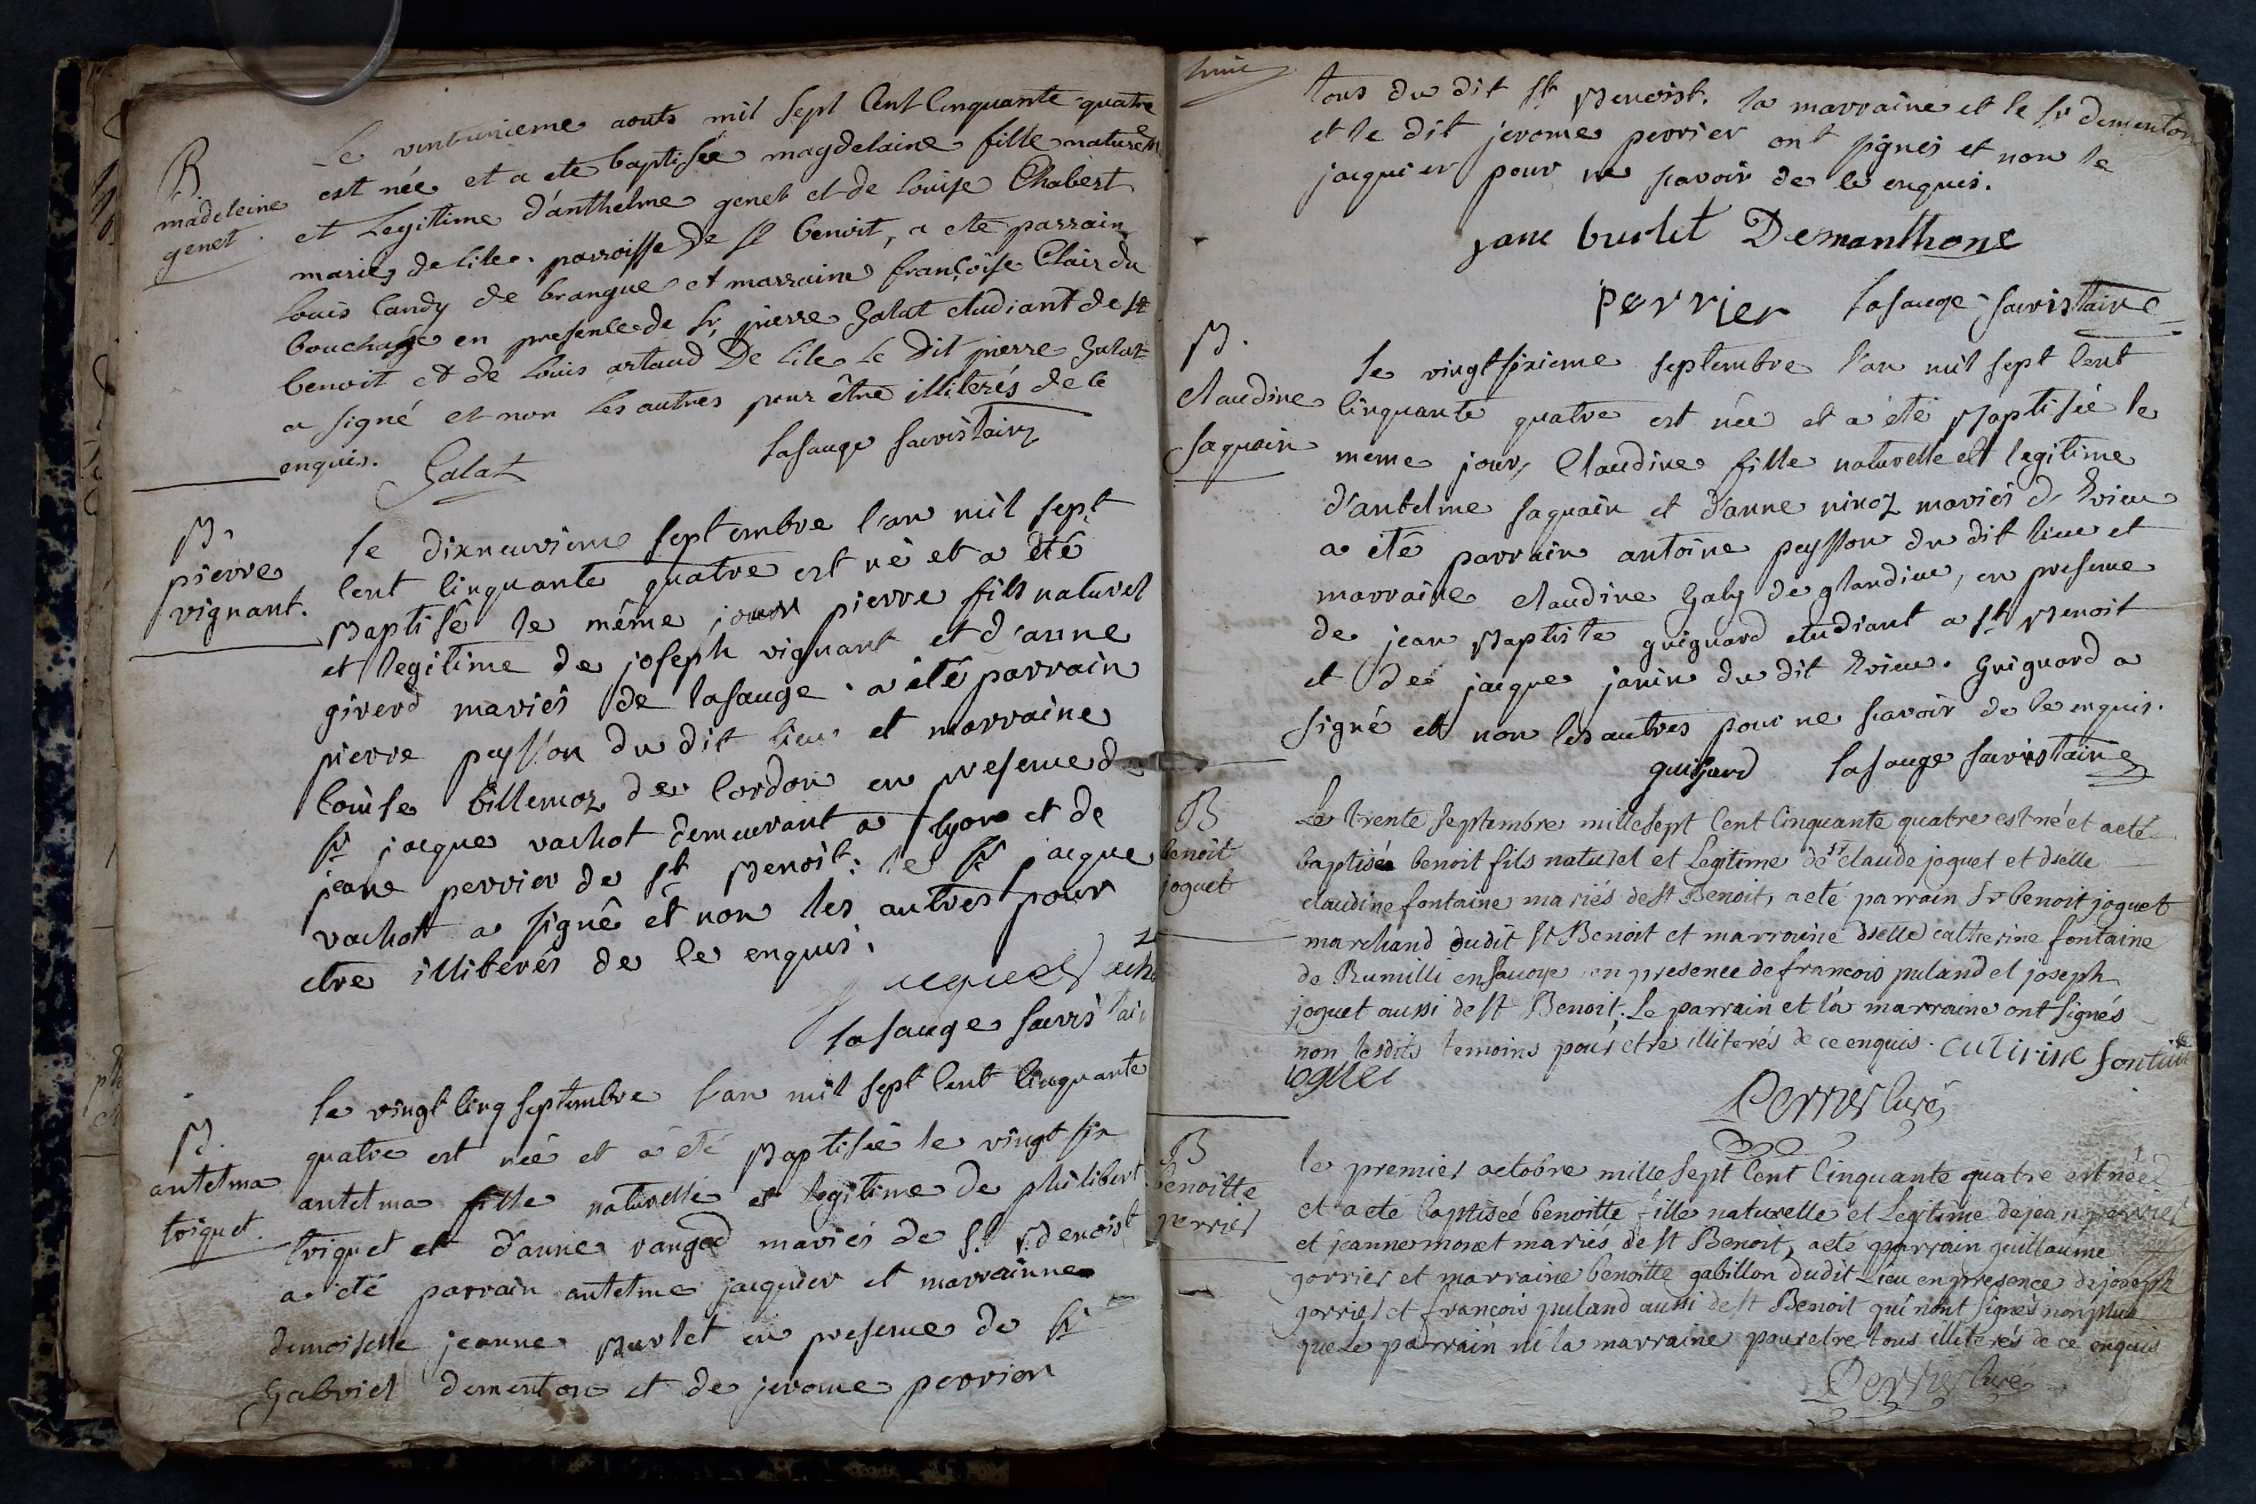 B
madeleine
genet.
Le vintunieme aouts mil sept Cent Cinquante quatre
est née et a ete baptisée magdelaine fille naturelle
et Legitime d'anthelme genet et de louise Chabert
mariés de lile. parroisse de St benoit, a ete parrain
louis landy de brangue et marraine françoise Clair du
bouchage en presence de Sr pierre Galat etudiant de St
benoit et de louis artaud De lile Le Dit pierre Galat
a signé et non les autres pour être illiterés de ce
enquis.
Galat
lasauge sacristain
B.
pierre
vignant.
le dixneuvieme septembre l'an mil sept
cent cinquante quatre est né et a été
Baptisé le même jour pierre fils naturel
et legitime de joseph vignant et d'anne
giverd mariés de lasauge. a été parrain
pierre peysson du dit lieu et marraine
louise billemoz de cordon en presence de
Sr jacque vachot demeurant a lyon et de
jean perrier de St Benoit. le Sr jacque
vachott a signé et non les autres pour
etre illiterés de ce enquis.
lasauge sacristain
B.
antelma
triquet.
le vingt cinq septembre l'an mil sept cent cinquante
quatre est née et a été Baptisée le vingt six
antelma fille naturelle et legitime de philibert
triquet et d'anne vangod mariés de St Benoist
a été parrain antelme jacquier et marrainne
demoiselle jeanne Burlet en presence de Sr
Gabriel dementon et de jerome perrier
tous du dit St Benoist. la marraine et le Sr dementon
et le dit jerome perrier ont signés et non le
jacquier pour ne scavoir de ce enquis.
jane burlet Demanthone
perrier lasauge sacristaine
B.
Claudine
saquain
le vingt sixieme septembre l'an mil sept cent
cinquante quatre est née et a été Baptisée le
meme jour, Claudine fille naturelle et legitime
d'antelme saquain et d'anne ninoz mariés d'Evieu
a été parrain antoine peysson du dit lieu et
marraine claudine Galy de glandieu, en presence
de jean Baptiste guignard etudiant a St Benoit
et de jacque janin du dit Evieu. Guignard a
signé et non les autres pour ne scavoir de ce enquis.
guigard lasauge sacristaine
B
benoit
joguet
Le trente septembre mille sept Cent Cinquante quatre est né et a eté
baptisée benoit fils naturel et Legitime de Sr claude joguet et dselle
claudine fontaine mariés de St Benoit, a eté parrain Sr benoit joguet
marchand dudit St Benoit et marraine dselle catherine fontaine
de Rumilli en Savoye en presence de francois puland et joseph
joguet aussi de St Benoit; Le parrain et la marraine ont signés
non lesdits temoins pour etre illiterés de ce enquis. Catirine fontaine
joguet
Perrier Curé
B
benoitte
perrier
le premier octobre mille sept Cent Cinquante quatre est née
et a eté baptiseé benoitte fille naturelle et Legitime de jean perrier
et jeanne monet mariés de St Benoit, a eté parrain guillaume
gorrier et marraine benoitte gabillon dudit Lieu en presence de joseph
gorrier et francois puland aussi de St Benoit qui n'ont signés non plus
que Le parrain ni la marraine pour etre tous illiterés de ce enquis
Perrier Curé